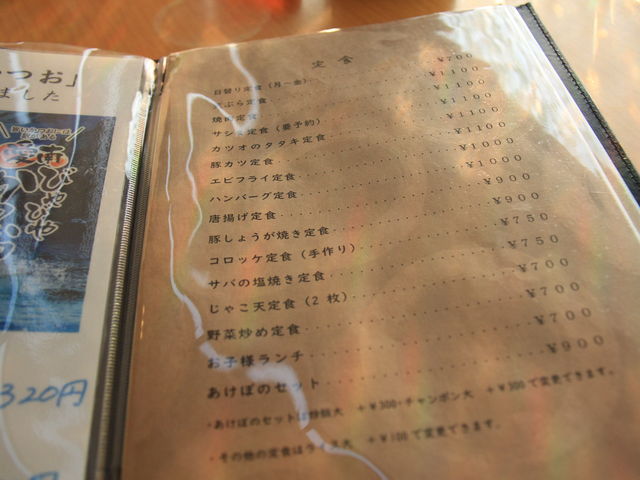 つお」
ました
愛南
びやびや
かつお
320円
定食
日替り定食（月～金）‥‥ ¥700
天ぷら定食‥‥ ¥1100
焼肉定食‥‥ ¥1100
サシミ定食（要予約）‥‥ ¥1100
カツオのタタキ定食‥‥ ¥1100
豚カツ定食‥‥ ¥1000
エビフライ定食‥‥ ¥1000
ハンバーグ定食‥‥ ¥1000
唐揚げ定食‥‥ ¥900
豚しょうが焼き定食‥‥ ¥900
コロッケ定食（手作り）‥‥ ¥750
サバの塩焼き定食‥‥ ¥750
じゃこ天定食（2枚）‥‥ ¥700
野菜炒め定食‥‥ ¥700
お子様ランチ‥‥ ¥700
あけぼのセット‥‥ ¥900
・あけぼのセットは炒飯大 ＋¥300・チャンポン大 ＋¥300で変更できます。
・その他の定食はライス大 ＋¥100で変更できます。